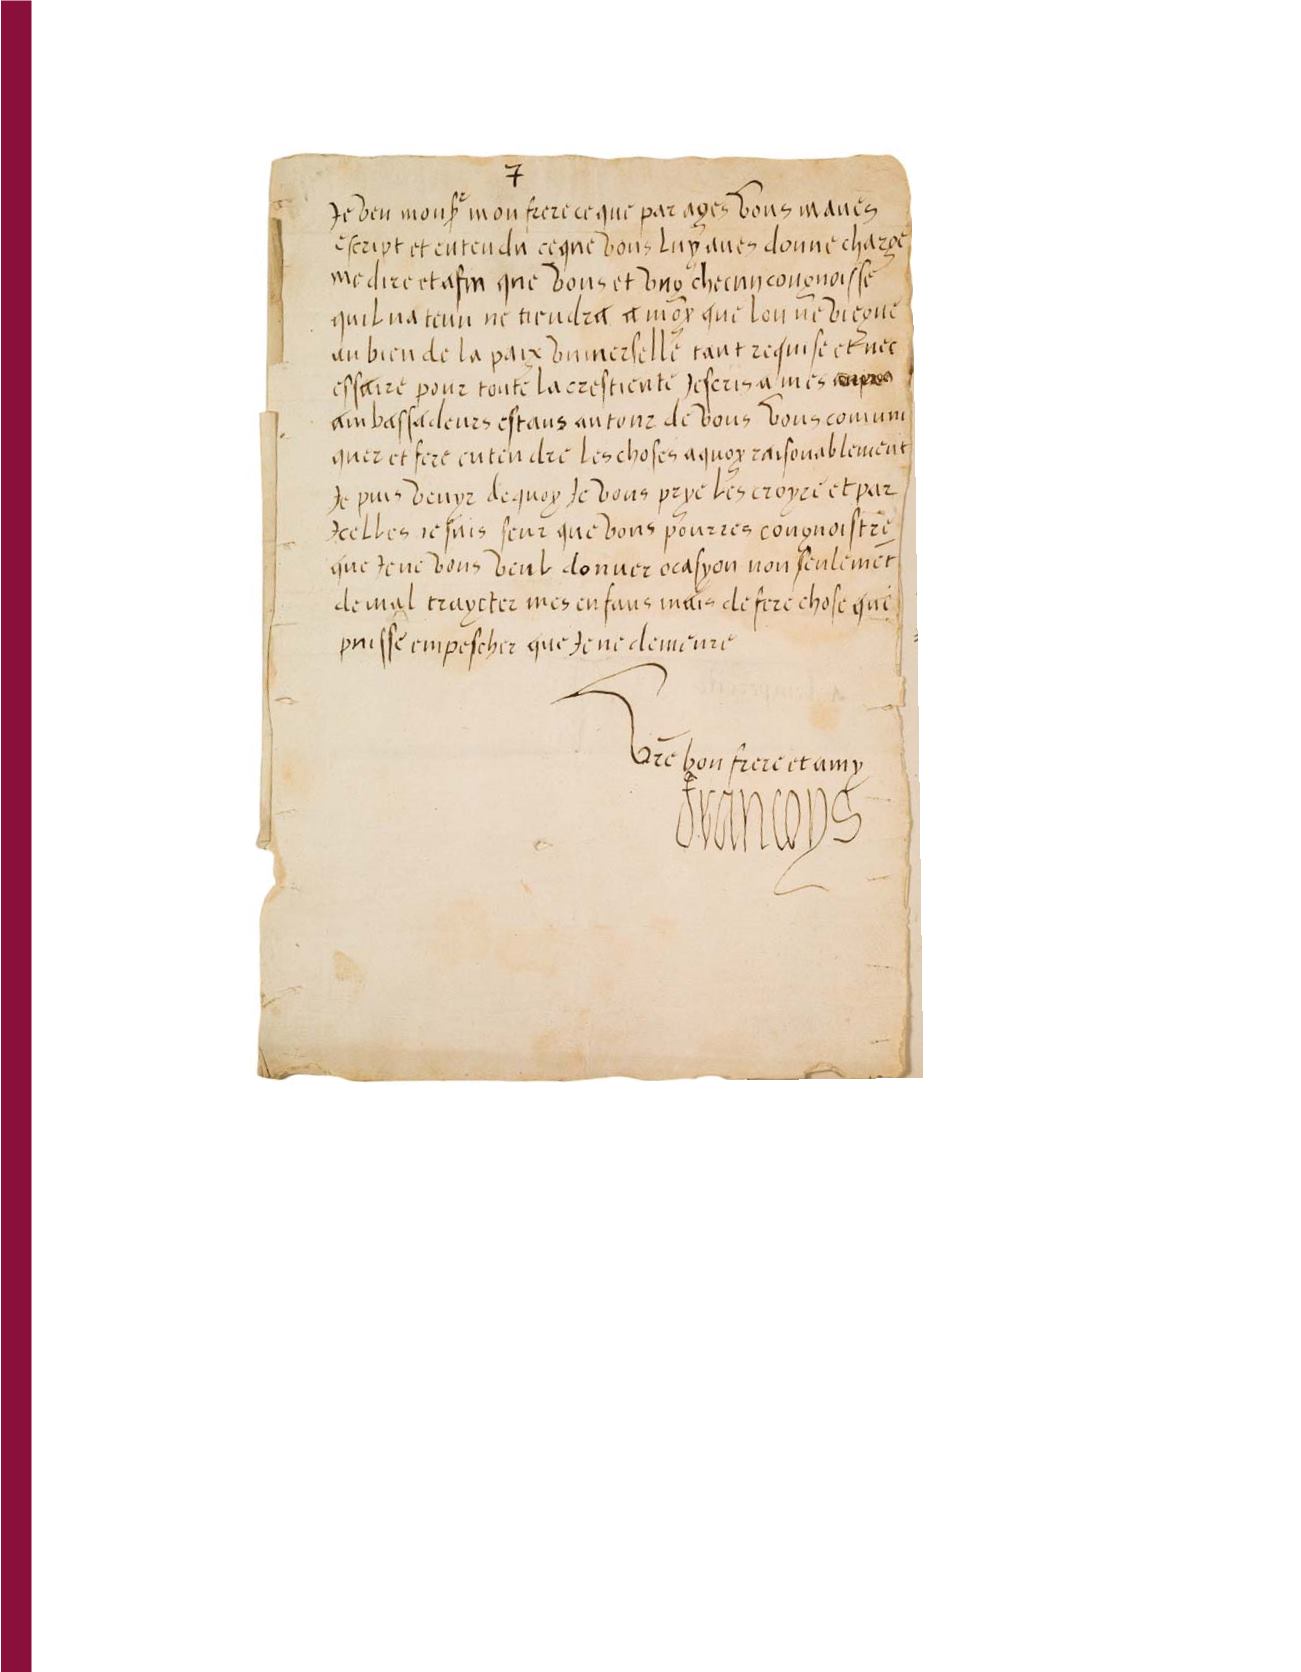 7
Je veu monsr mon frere ce que par ages vous maves
escript et entendu ce que vous luy aves donne charge
me dire et afin que vous et ung checun congnoisse
quil na tenu ne tiendra a moy que lon ne viegne
au bien de la paix universelle tant requise et nec
essaire pour toute la crestiente Jescris a mes
ambassadeurs estans autour de vous vous comuni
quer et fere entendre les choses a quoy raisonablement
Je puis venyr de quoy Je vous prye les croyre et par
Jcelles je suis seur que vous pourres congnoistre
que Je ne vous veul donner ocasyon non seulemet
de mal traycter mes enfans mais de fere chose que
puisse empescher que Je ne demeure
Vre bon frere et amy
Francoys